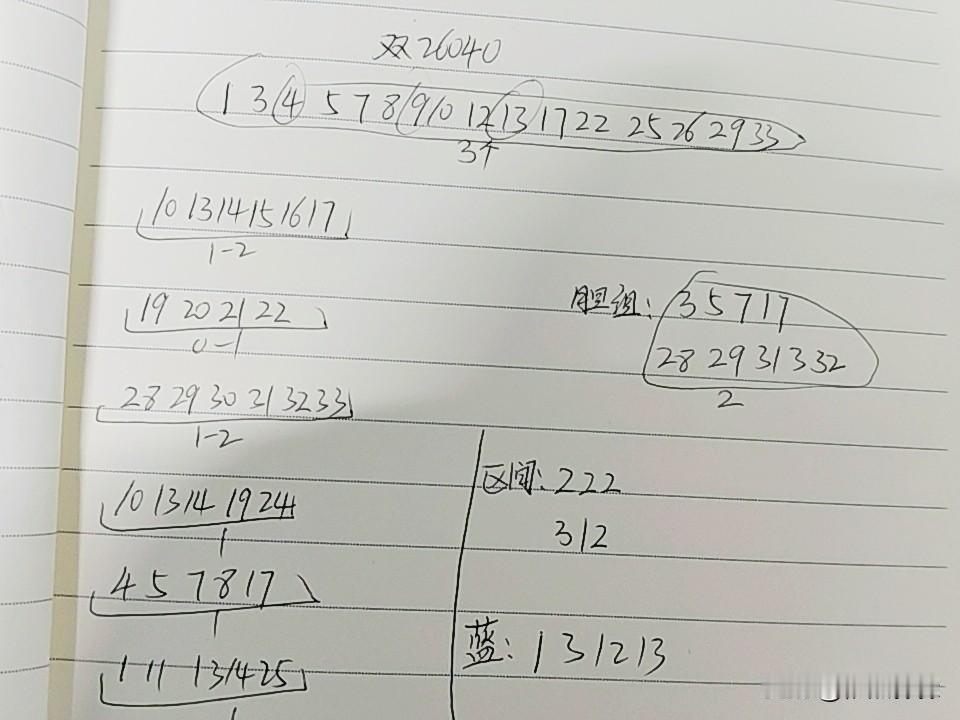 双26040
1 3 4 5 7 8 9 10 12 13 17 22 25 26 29 33
3个
10 13 14 15 16 17
1-2
19 20 21 22
0-1
28 29 30 31 32 33
1-2
10 13 14 19 24
1
4 5 7 8 17
1
1 11 13 14 25
1
胆组: 3 5 7 17
28 29 31 3 32
2
区间: 222
312
蓝: 1 3 12 13